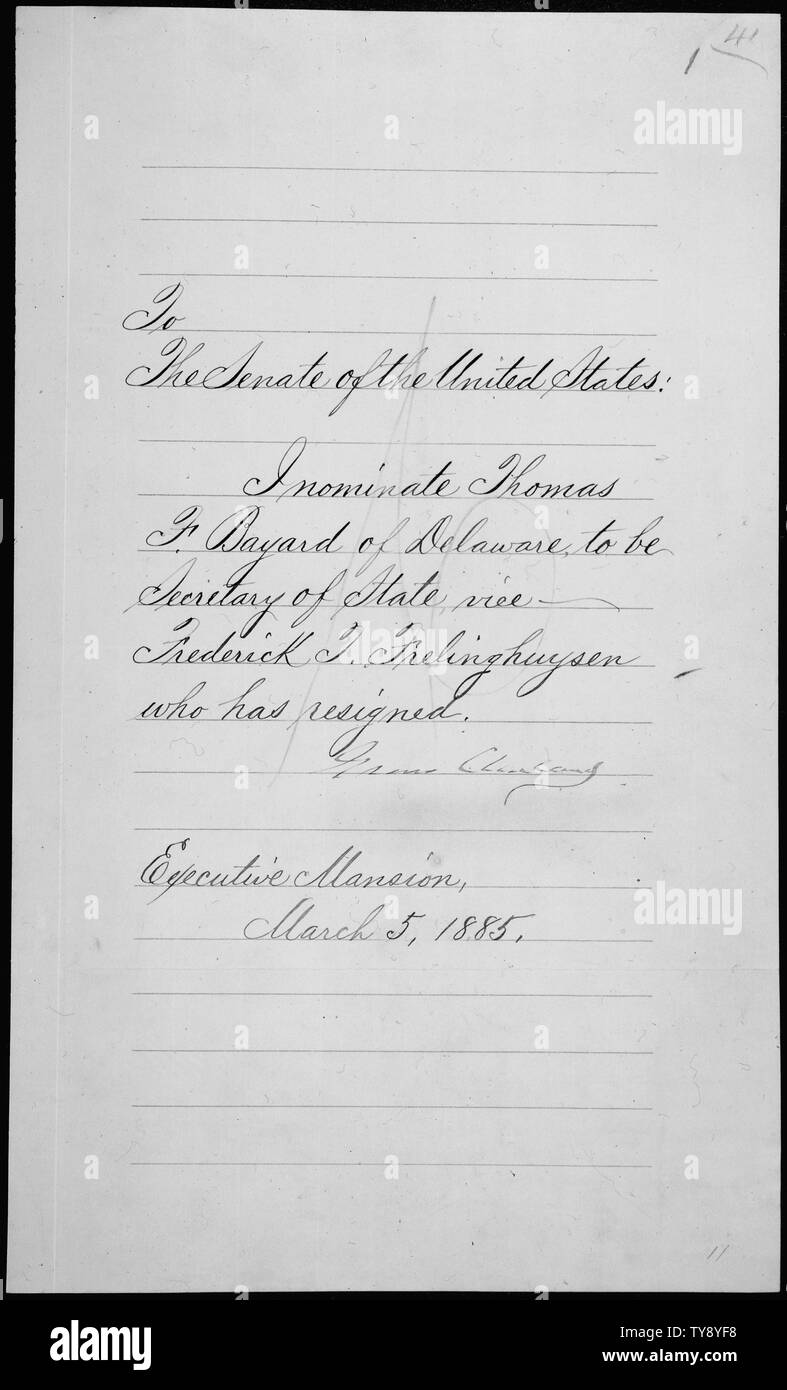 41
1
To
The Senate of the United States:
I nominate Thomas
F. Bayard of Delaware, to be
Secretary of State, vice
Frederick T. Frelinghuysen
who has resigned.
Grover Cleveland
Executive Mansion,
March 5, 1885.
11
alamy
alamy
alamy
alamy
Image ID: TY8YF8
www.alamy.com